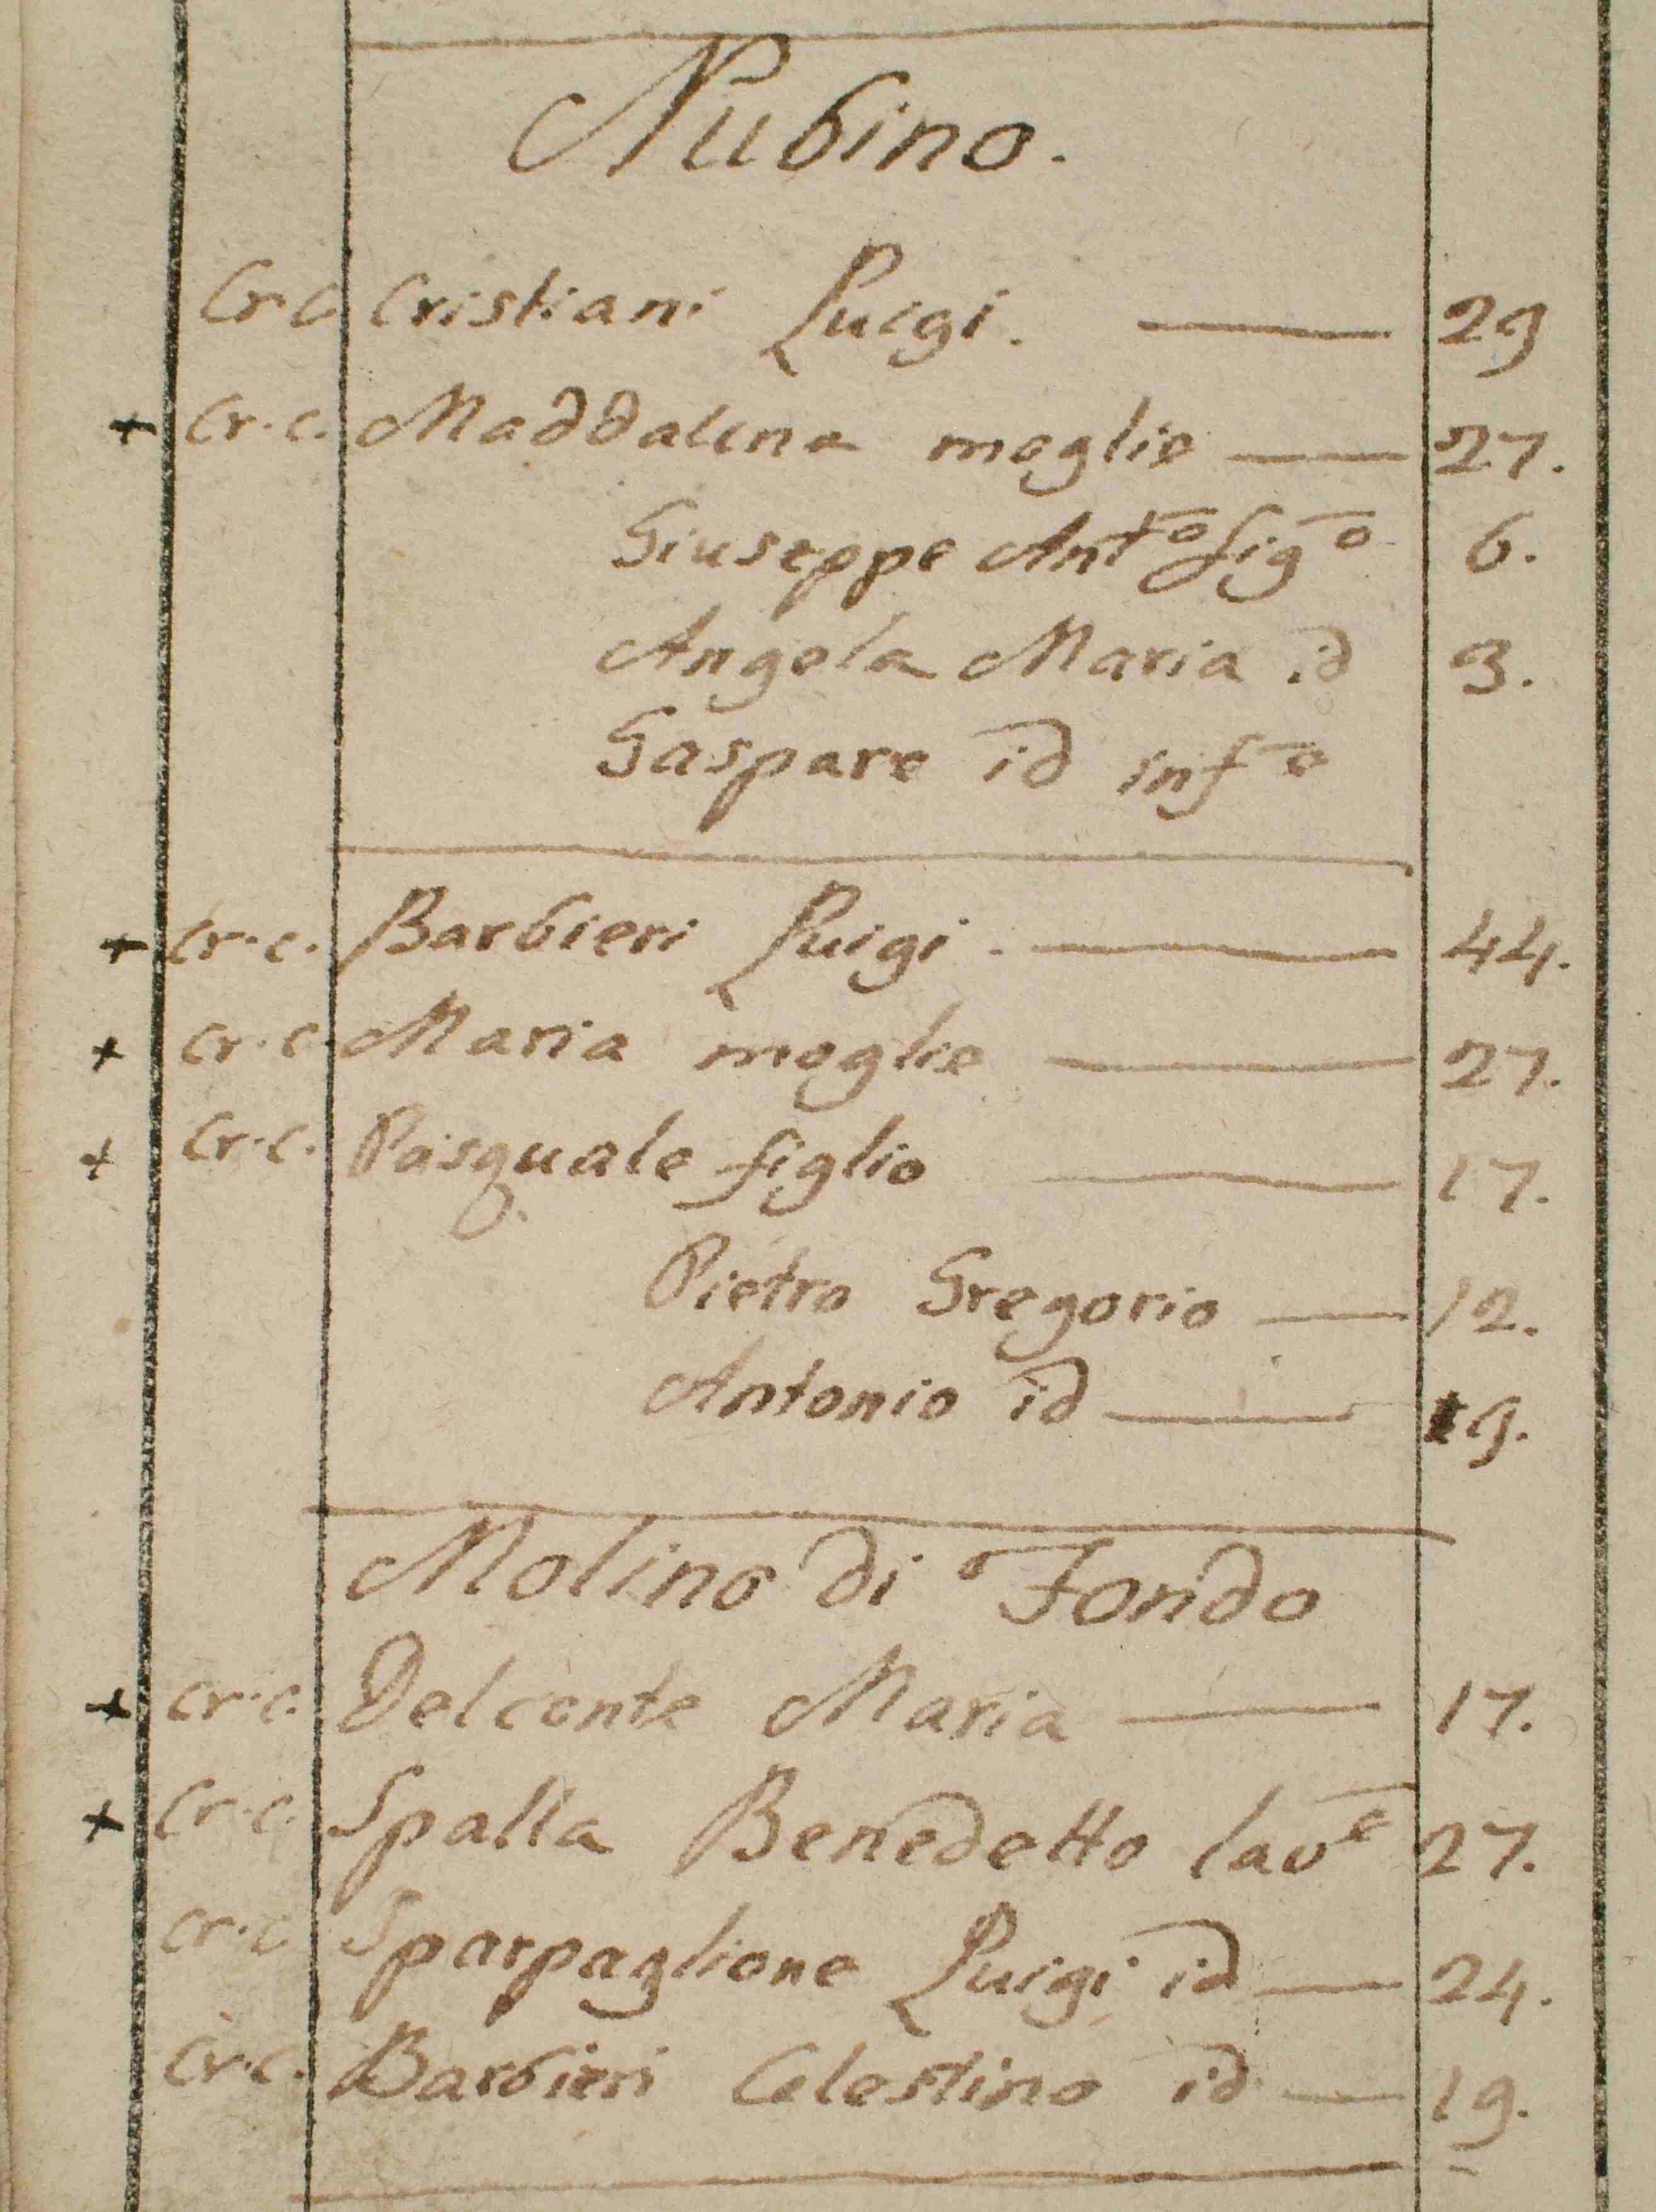 Nubino.
Cr. c. Cristiani Luigi. — 29
+ Cr. c. Maddalena moglie — 27.
Giuseppe Ant.o fig.o 6.
Angela Maria id 3.
Gaspare id inf.o
+ cr. c. Barbieri Luigi. — 44.
+ cr. c. Maria moglie — 27.
+ Cr. c. Pasquale figlio — 17.
Pietro Gregorio — 12.
Antonio id — 9.
Molino di Fondo
+ cr. c. Delconte Maria — 17.
+ Cr. c. Spalla Benedetto lav.e 27.
cr. c. Sparpaglione Luigi id — 24.
Cr. c. Barbieri Celestino id — 19.